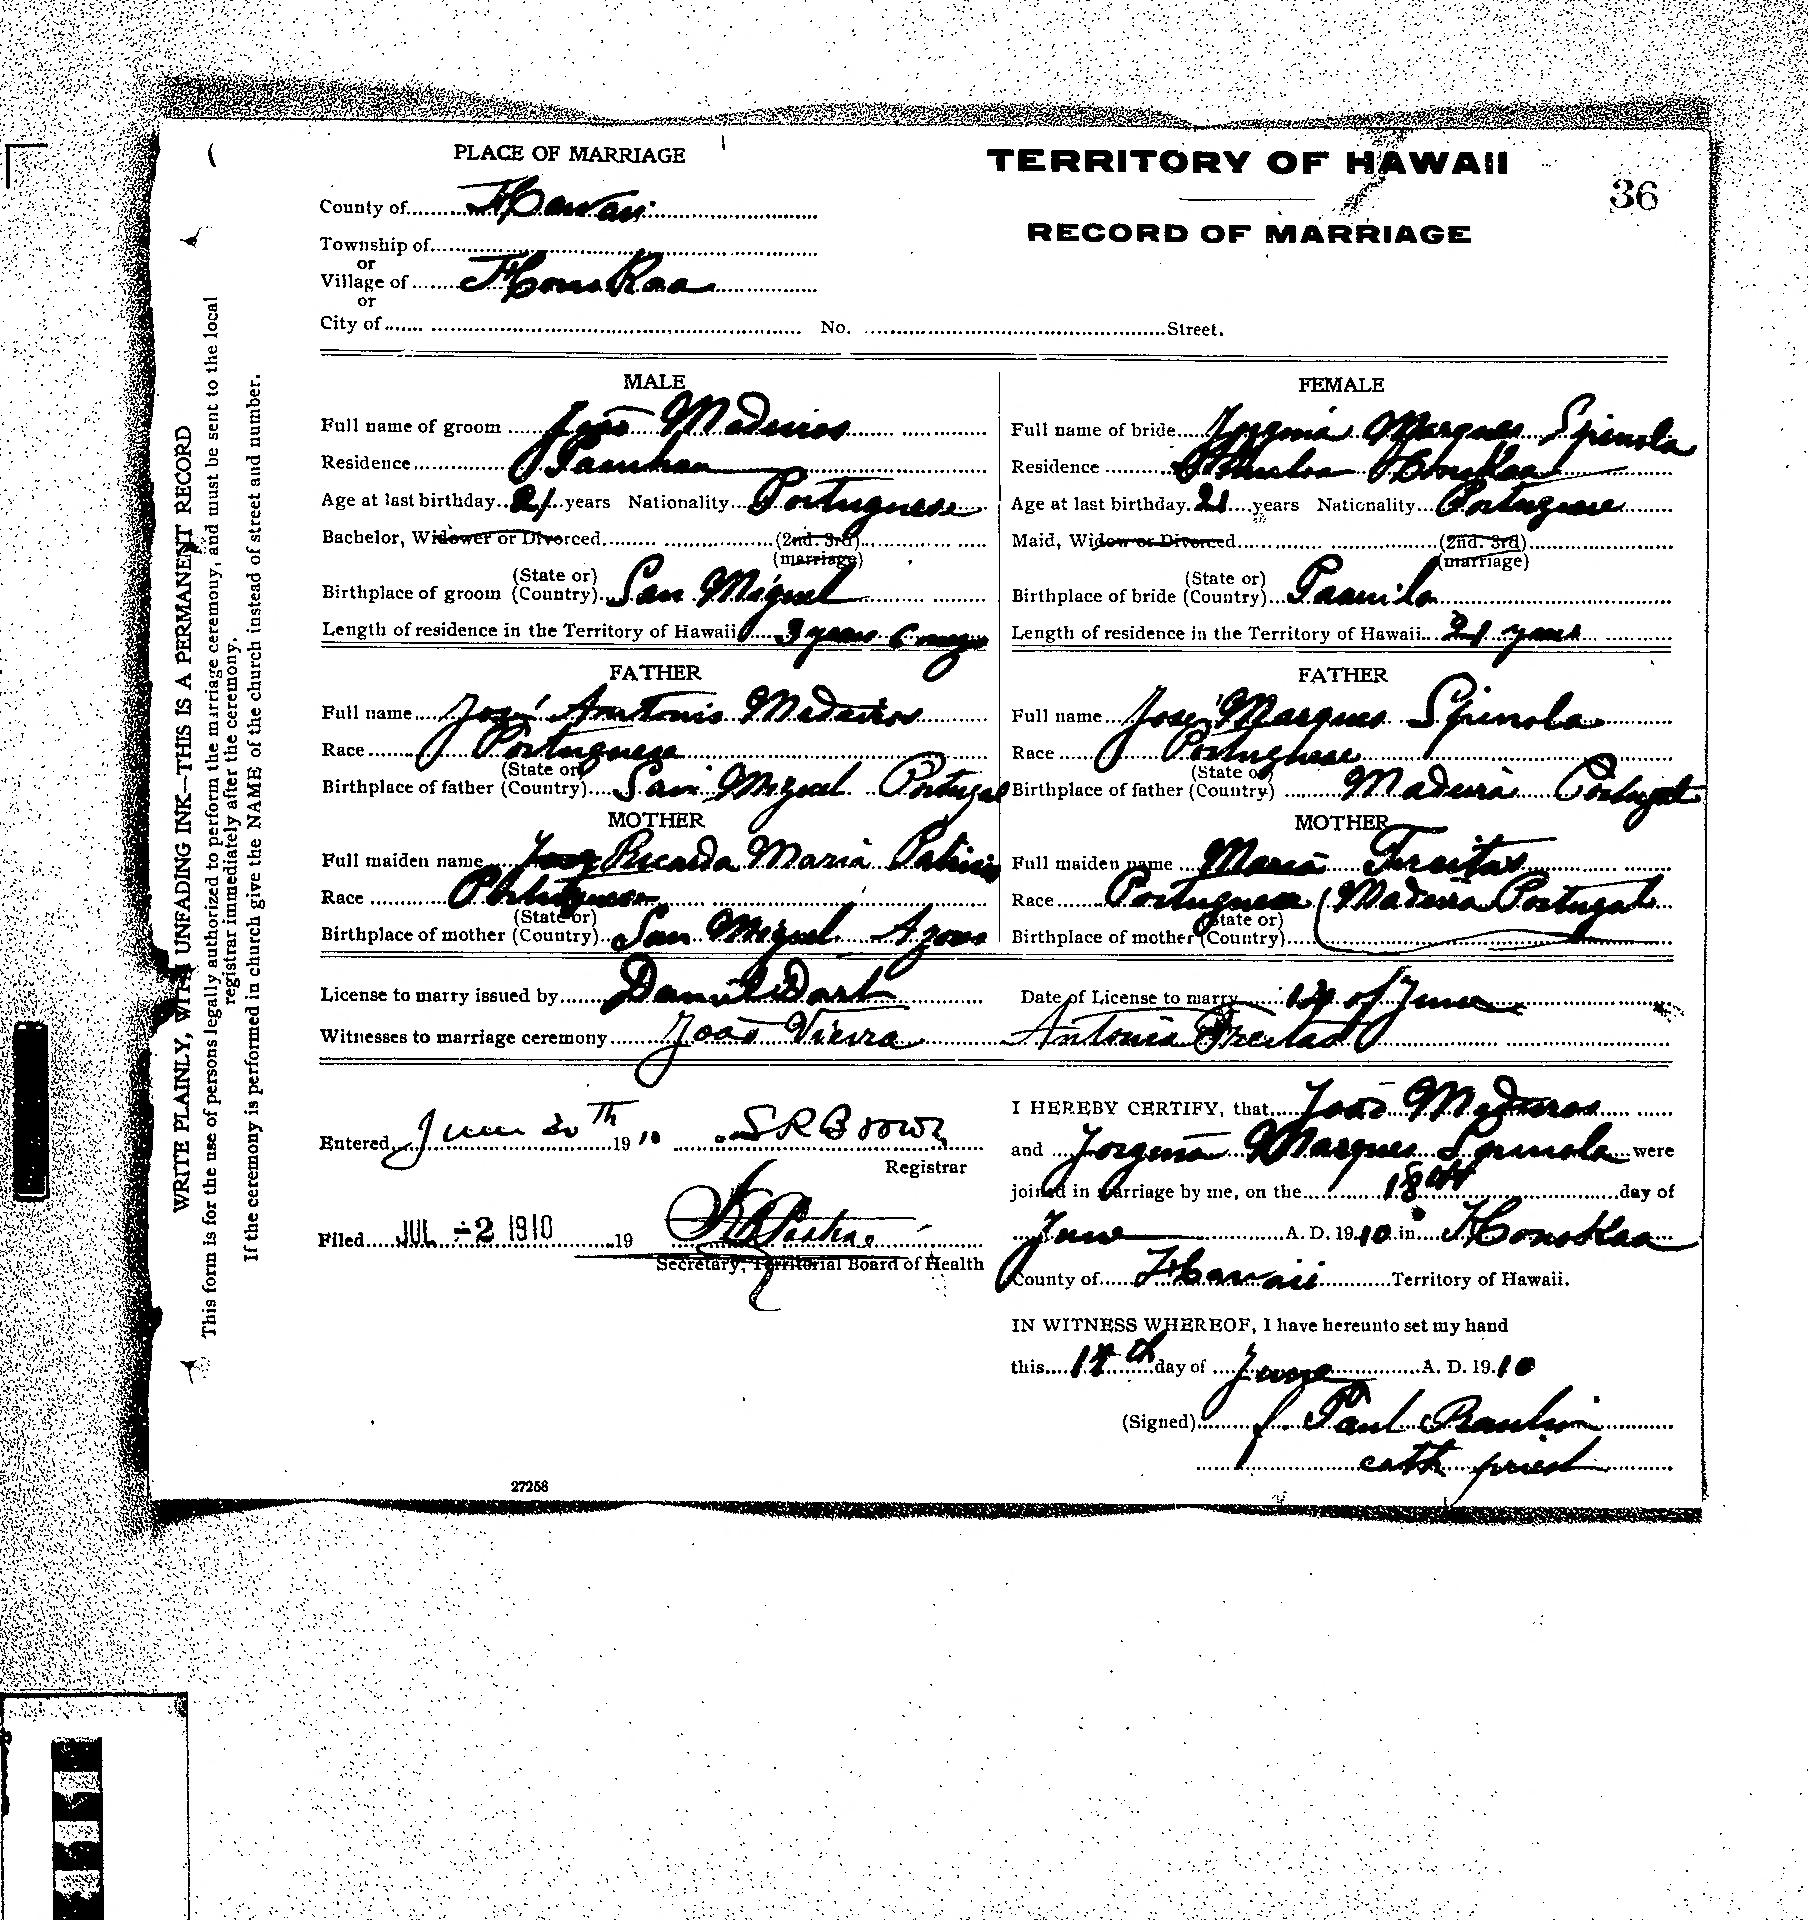 PLACE OF MARRIAGE
TERRITORY OF HAWAII
36
RECORD OF MARRIAGE
County of Hawaii
Township of
or
Village of Honokaa
or
City of No. Street.
MALE
Full name of groom João Madeiros
Residence Paauhau
Age at last birthday 21 years Nationality Portuguese
Bachelor, Widower or Divorced. (2nd. 3rd)
(marriage)
(State or)
Birthplace of groom (Country) San Miguel
Length of residence in the Territory of Hawaii 3 years 6
FATHER
Full name José Antonio Madeiros
Race Portuguese
(State or
Birthplace of father (Country) San Miguel Portugal
MOTHER
Full maiden name Ricarda Maria
Race Portuguese
(State or)
Birthplace of mother (Country) San Miguel Azores
FEMALE
Full name of bride Marques Spinola
Residence Honokaa
Age at last birthday 21 years Nationality Portuguese
Maid, Widow or Divorced (2nd. 3rd)
(marriage)
(State or)
Birthplace of bride (Country)
Length of residence in the Territory of Hawaii 21 years
FATHER
Full name José Marques Spinola
Race Portuguese
(State or
Birthplace of father (Country) Madeira Portugal
MOTHER
Full maiden name Maria Freitas
Race Portuguese (Madeira Portugal
(State or)
Birthplace of mother (Country)
License to marry issued by Date of License to marry of June
Witnesses to marriage ceremony João Vieira Antonia Freitas
Entered June 20th 1910 S R Brown
Registrar
Filed JUL -2 1910 19
Secretary, Territorial Board of Health
I HEREBY CERTIFY, that João Madeiros
and Jorgina Marques Spinola were
joined in marriage by me, on the 18th day of
June A. D. 1910 in Honokaa
County of Hawaii Territory of Hawaii.
IN WITNESS WHEREOF, I have hereunto set my hand
this day of June A. D. 1910
(Signed) f. Paul
cath priest
27258
WRITE PLAINLY, WITH UNFADING INK—THIS IS A PERMANENT RECORD
This form is for the use of persons legally authorized to perform the marriage ceremony, and must be sent to the local
registrar immediately after the ceremony.
If the ceremony is performed in church give the NAME of the church instead of street and number.